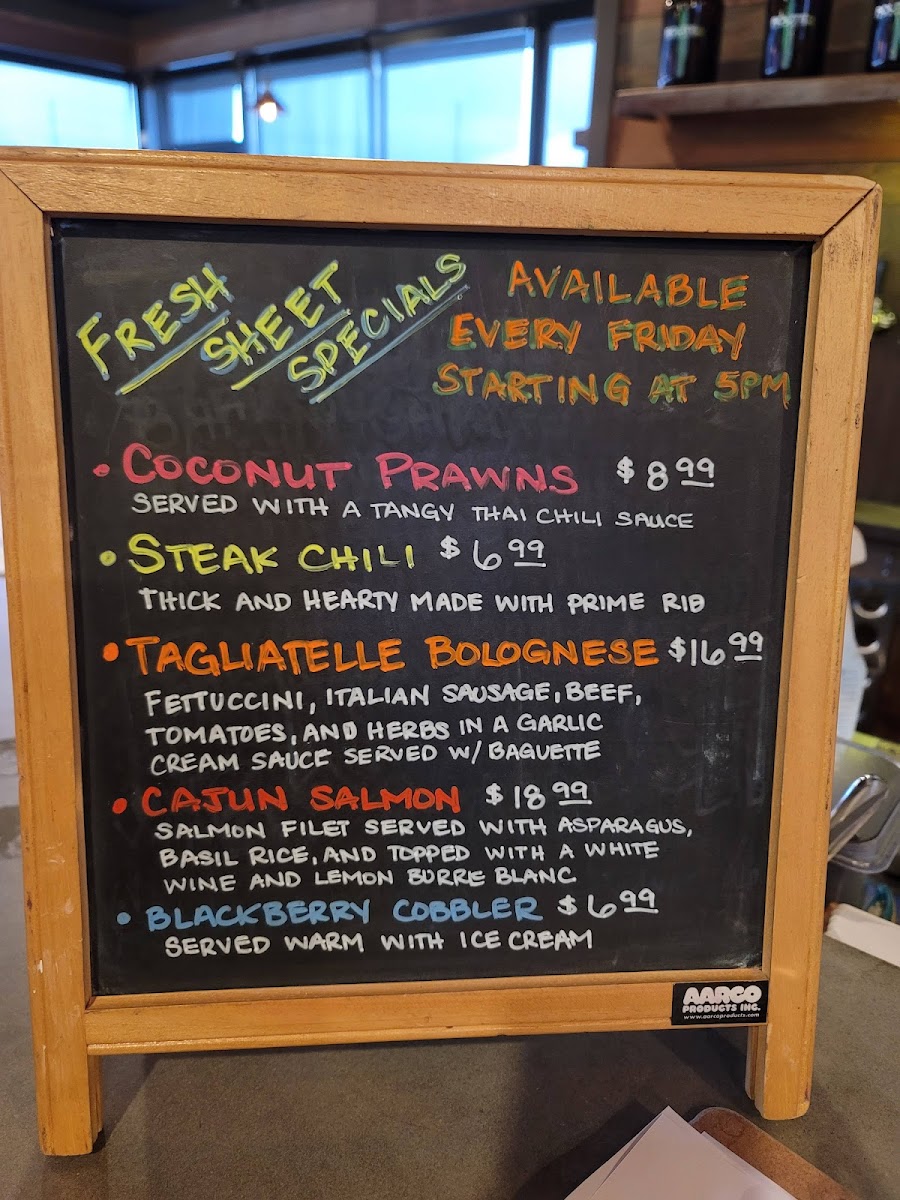 FRESH
SHEET
SPECIALS
AVAILABLE
EVERY FRIDAY
STARTING AT 5PM
• COCONUT PRAWNS $8.99
SERVED WITH A TANGY THAI CHILI SAUCE
• STEAK CHILI $6.99
THICK AND HEARTY MADE WITH PRIME RIB
• TAGLIATELLE BOLOGNESE $16.99
FETTUCCINI, ITALIAN SAUSAGE, BEEF,
TOMATOES, AND HERBS IN A GARLIC
CREAM SAUCE SERVED W/ BAGUETTE
• CAJUN SALMON $18.99
SALMON FILET SERVED WITH ASPARAGUS,
BASIL RICE, AND TOPPED WITH A WHITE
WINE AND LEMON BURRE BLANC
• BLACKBERRY COBBLER $6.99
SERVED WARM WITH ICE CREAM
AARCO
PRODUCTS INC.
www.aarcoproducts.com